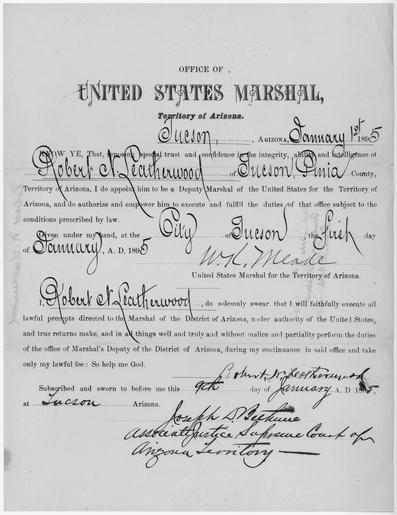 OFFICE OF
UNITED STATES MARSHAL,
Territory of Arizona.
Tucson, ARIZONA, January 1st 1895
KNOW YE, That, reposing special trust and confidence in the integrity, ability and intelligence of
Robert N. Leatherwood of Tucson, Pima County,
Territory of Arizona, I do appoint him to be a Deputy Marshal of the United States for the Territory of
Arizona, and do authorize and empower him to execute and fulfill the duties of that office subject to the
conditions prescribed by law.
Given under my hand, at the City of Tucson the first day
of January, A. D. 1895
W. K. Meade
United States Marshal for the Territory of Arizona.
I, Robert N. Leatherwood, do solemnly swear that I will faithfully execute all
lawful precepts directed to the Marshal of the District of Arizona, under authority of the United States,
and true returns make, and in all things well and truly and without malice and partiality perform the duties
of the office of Marshal's Deputy of the District of Arizona, during my continuance in said office and take
only my lawful fee: So help me God.
Robert N. Leatherwood
Subscribed and sworn to before me this 9th day of January A. D 1895,
at Tucson Arizona.
Joseph D. Bethune
Associate Justice Supreme Court of
Arizona Territory